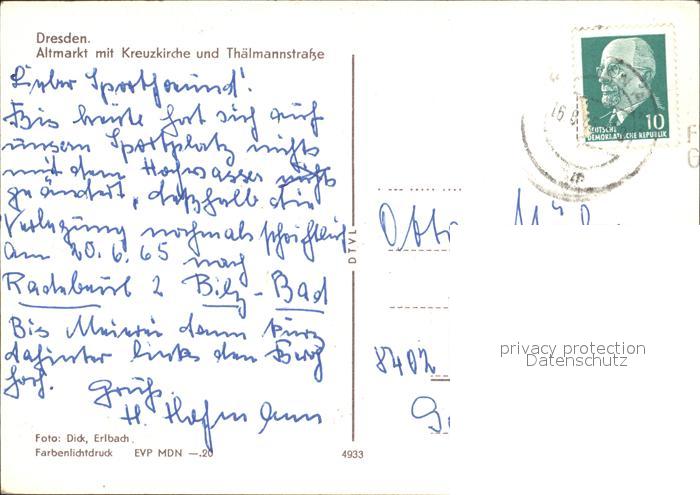 Dresden.
Altmarkt mit Kreuzkirche und Thälmannstraße
Lieber Sportfreund!
Bis heute hat sich auf
unsern Sportplatz nichts
mit dem Hochwasser nichts
geändert, deshalb die
Verlegung nochmals schriftlich
am 20.6.65 nach
Radebeul 2 Bilz-Bad
Bis Meierei dann kurz
dahinter links den Berg
hoch. Gruß.
H. Hofmann
Foto: Dick, Erlbach.
Farbenlichtdruck EVP MDN —.20
4933
DTVL
10
DEUTSCHE
DEMOKRATISCHE REPUBLIK
Otto
8402
privacy protection
Datenschutz